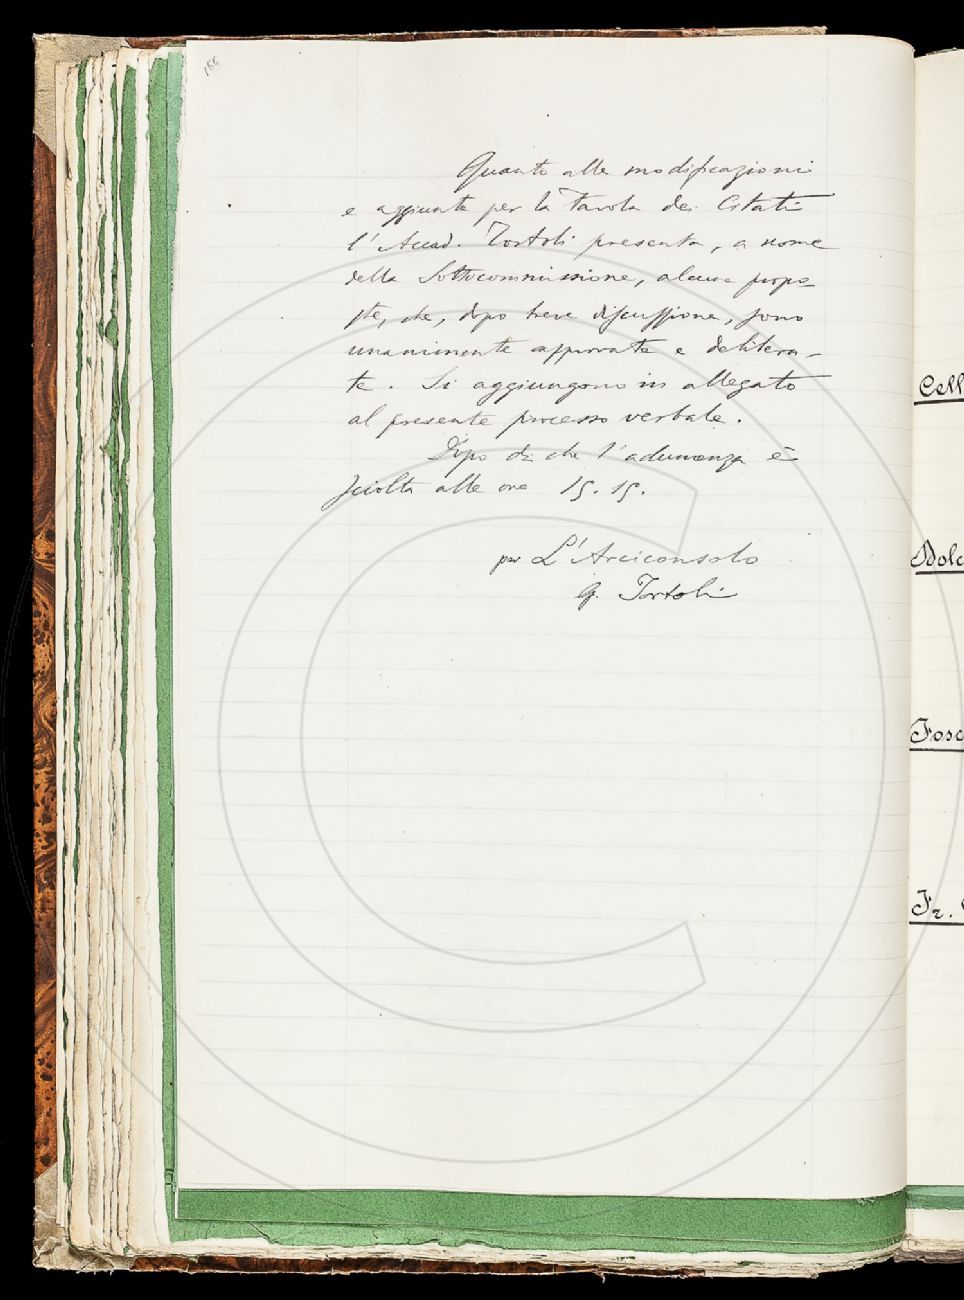 186
Quanto alle modificazioni
e aggiunte per la Tavola dei Citati
l'Accad. Tortoli presenta, a nome
della Sottocommissione, alcune propo-
ste, che, dopo breve discussione, sono
unanimente approvate e delibera-
te. Si aggiungono in allegato
al presente processo verbale.
Dopo di che l'adunanza è
sciolta alle ore 15.15.
per L'Arciconsolo
G. Tortoli
Cell
Dolc
Fosc
Fr.